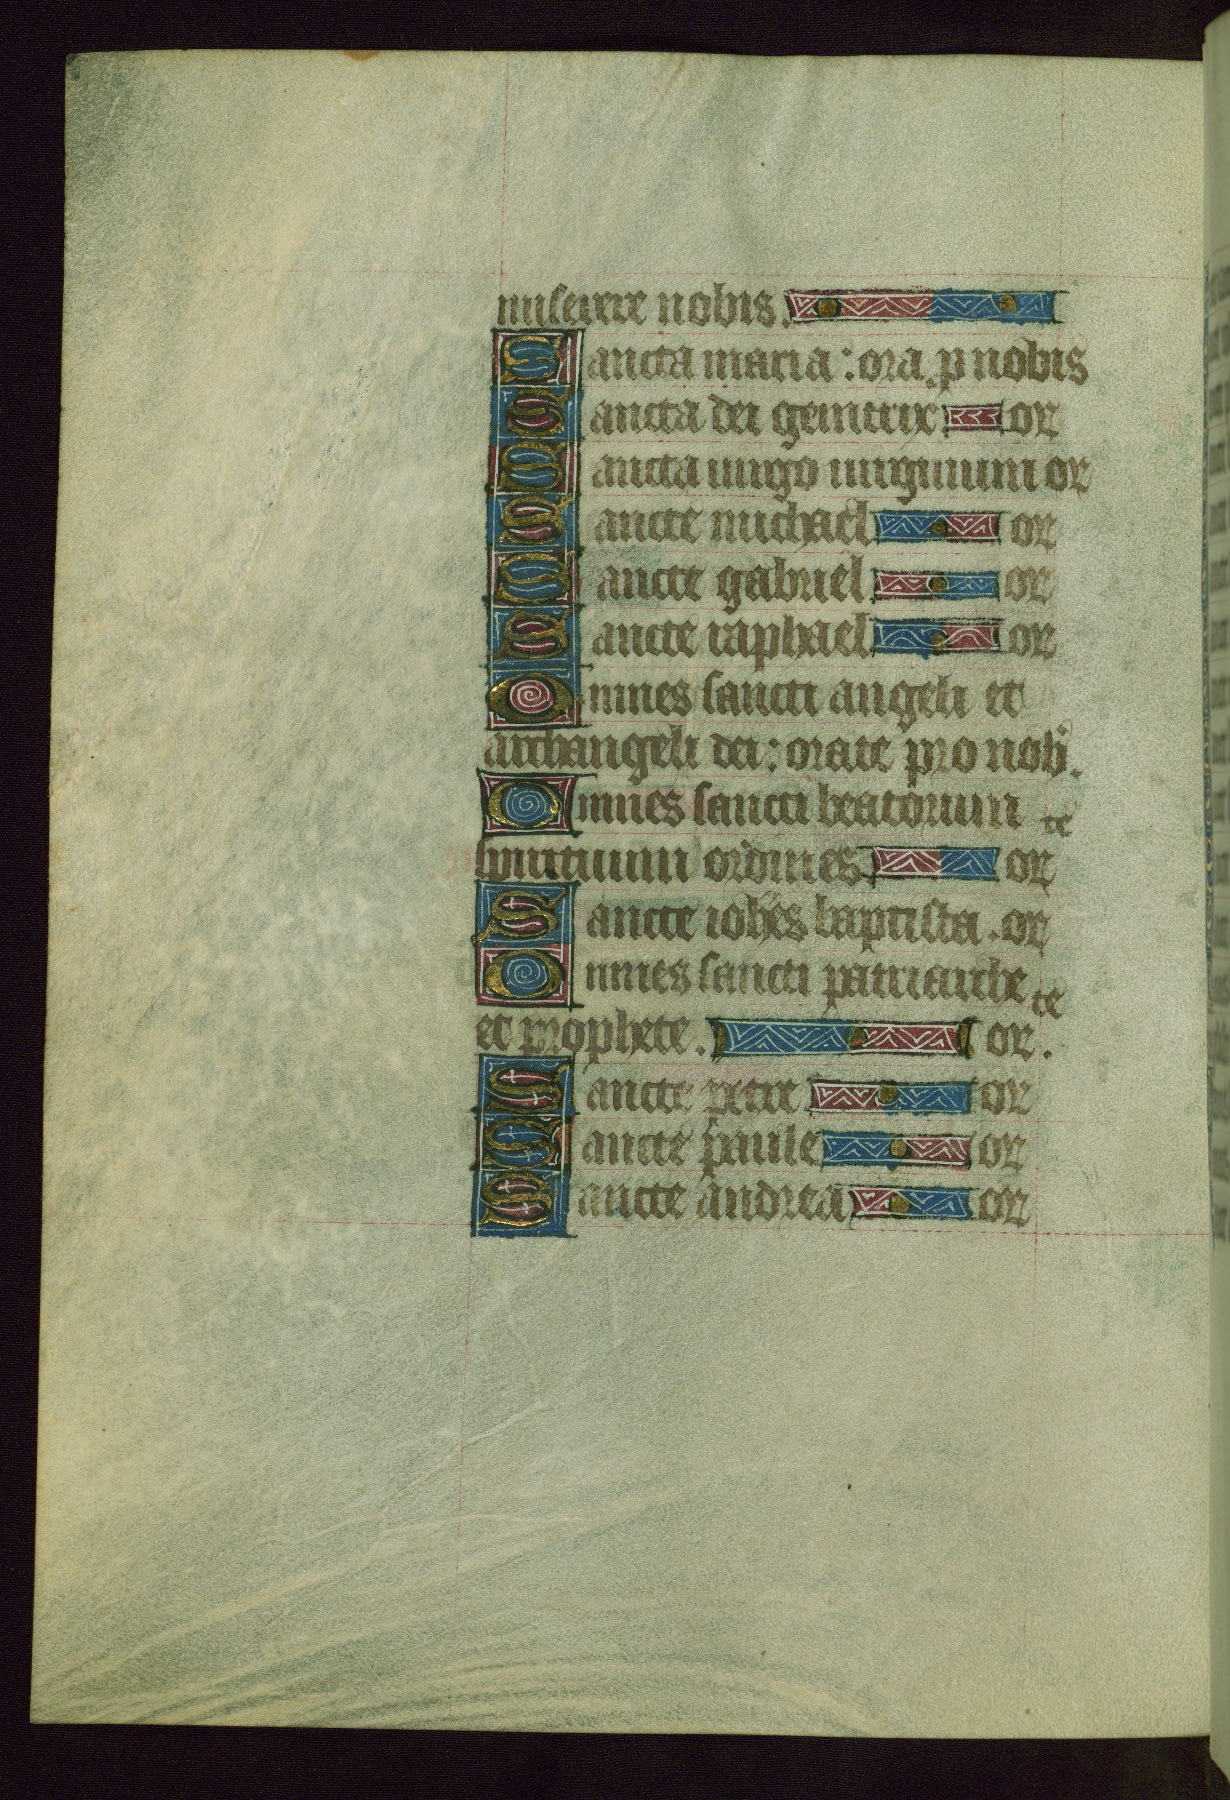 miserere nobis.
Sancta maria: ora p nobis
Sancta dei genitrix or
Sancta uirgo uirginum or
Sancte michael or
Sancte gabriel. or
Sancte raphael or
Omnes sancti angeli et
archangeli dei: orate pro nob.
Omnes sancti beatorum te
spirituum ordines. or
Sancte iohes baptista. or
Omnes sancti patriarche te
et prophete. or.
Sancte petre or
Sancte paule or
Sancte andrea or